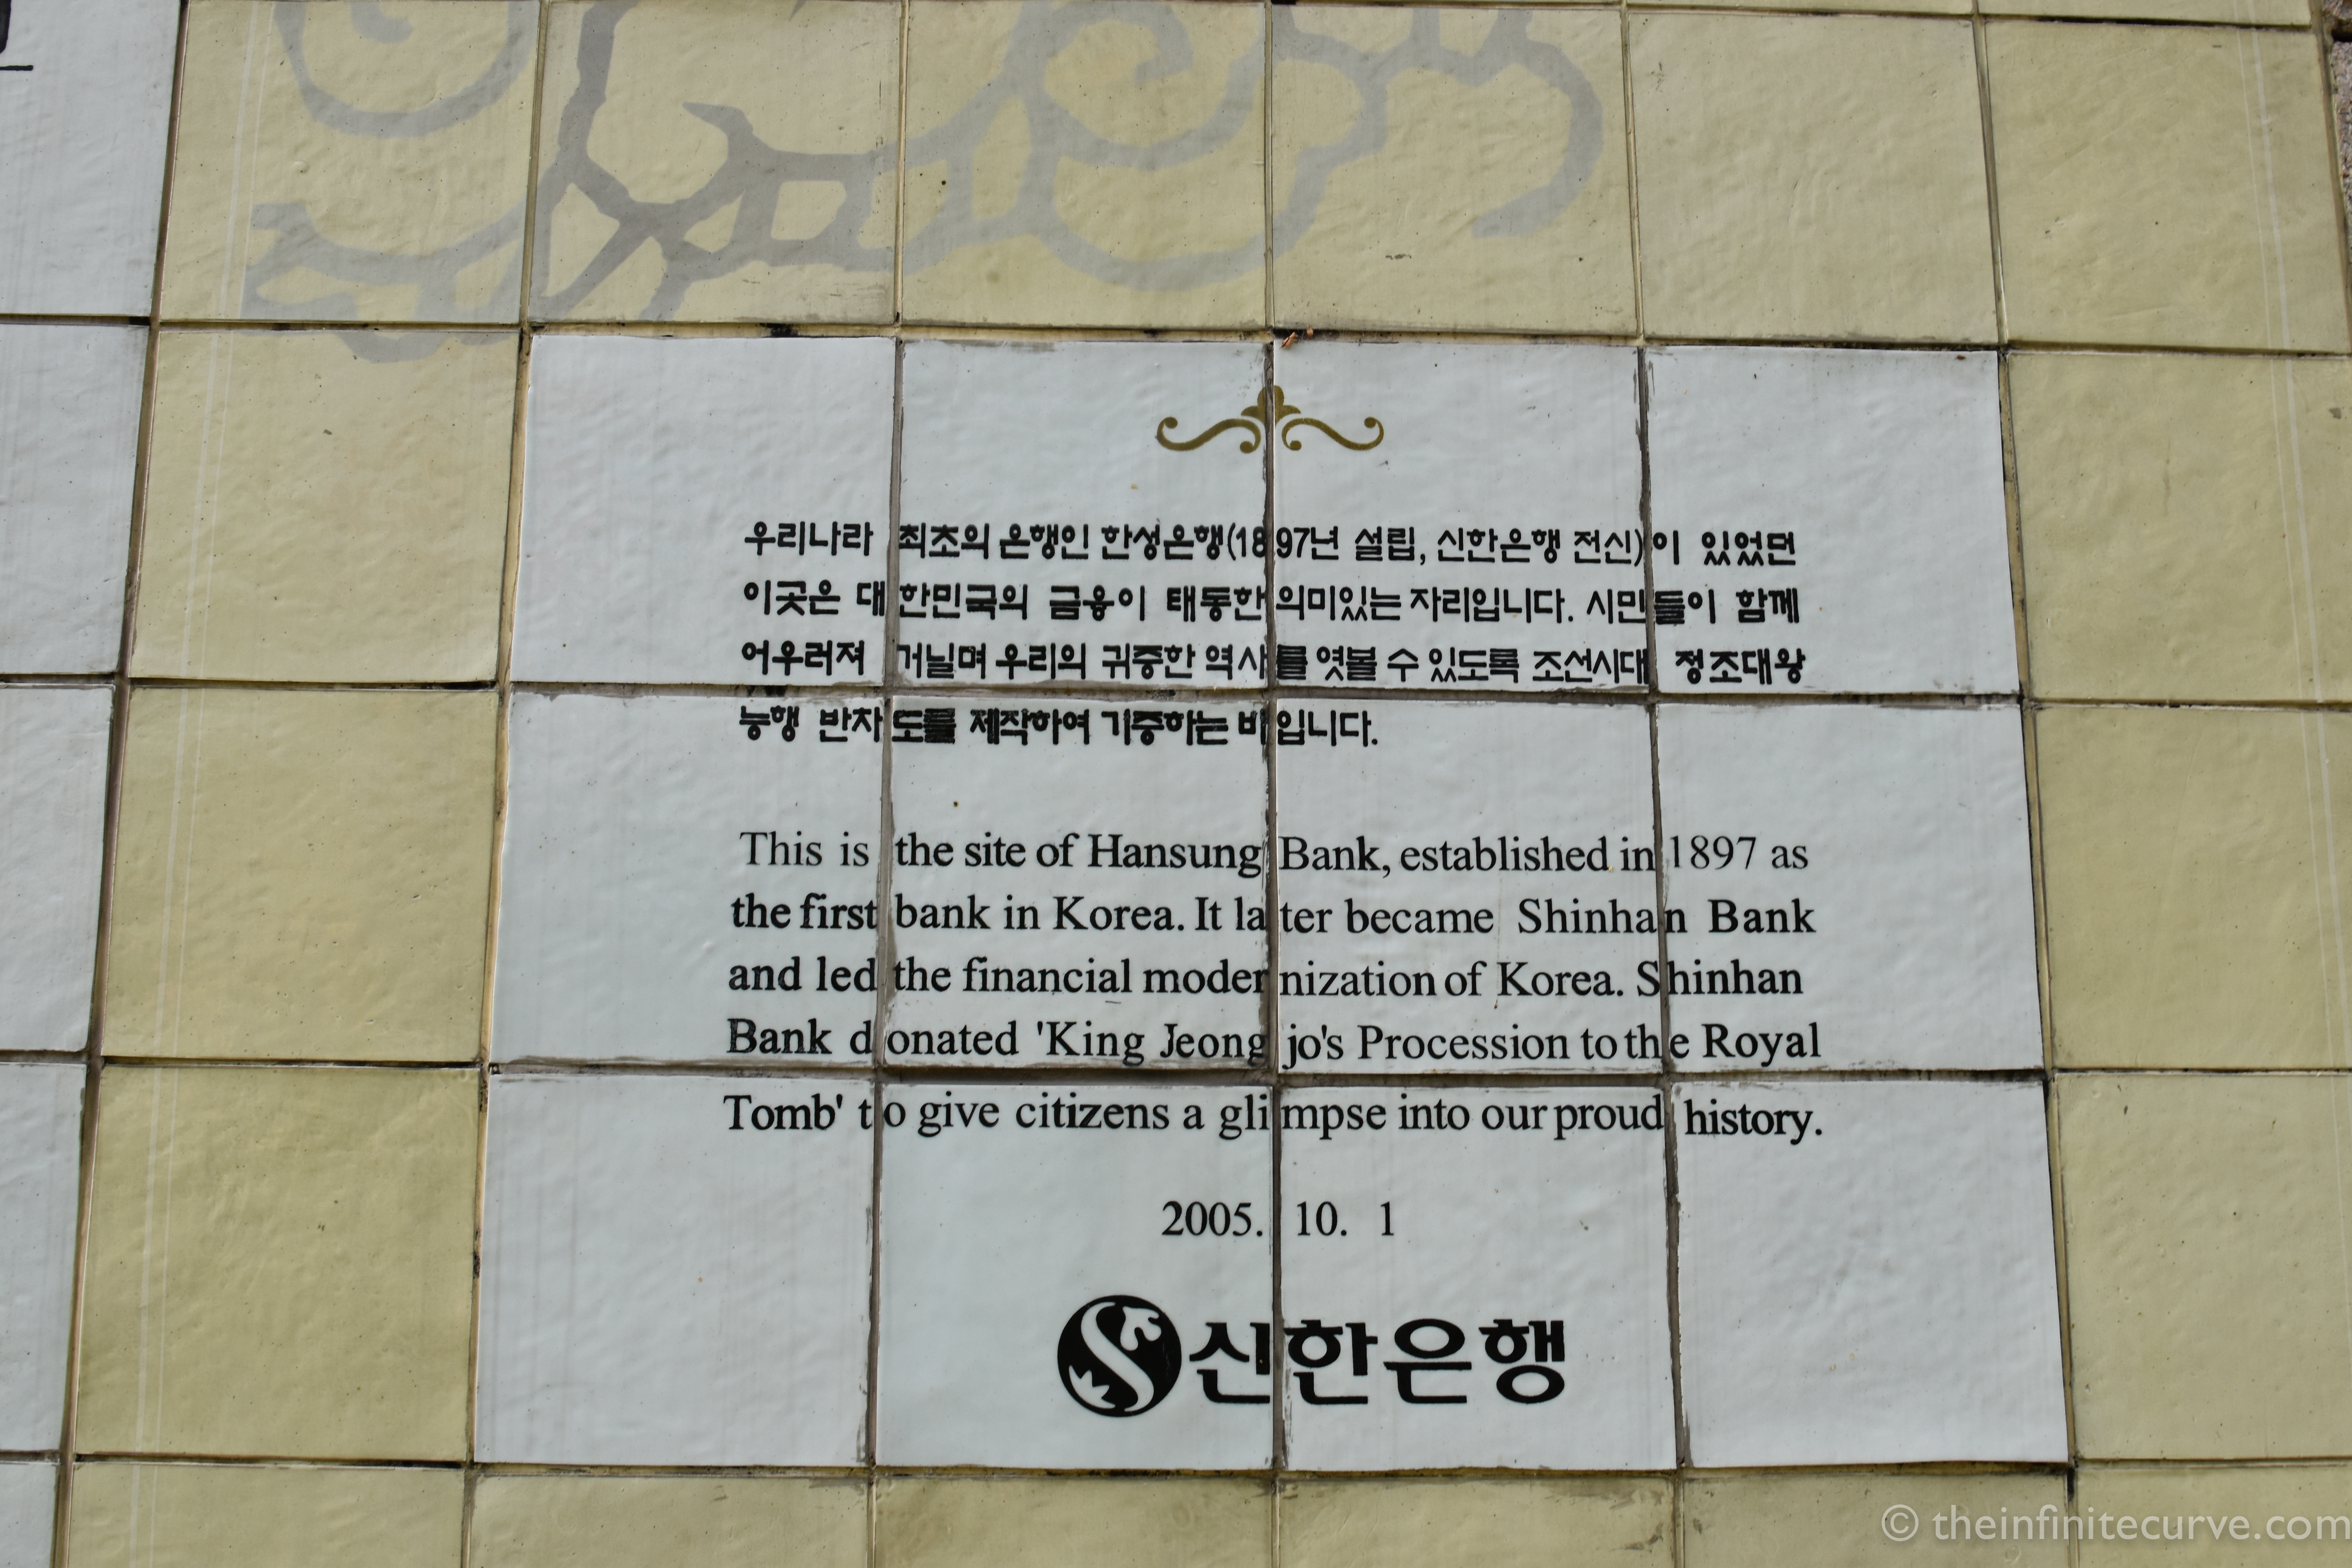 우리나라 최초의 은행인 한성은행(1897년 설립, 신한은행 전신)이 있었던
이곳은 대한민국의 금융이 태동한 의미있는 자리입니다. 시민들이 함께
어우러져 거닐며 우리의 귀중한 역사를 엿볼 수 있도록 조선시대 정조대왕
능행 반차도를 제작하여 기증하는 바입니다.
This is the site of Hansung Bank, established in 1897 as
the first bank in Korea. It later became Shinhan Bank
and led the financial modernization of Korea. Shinhan
Bank donated 'King Jeongjo's Procession to the Royal
Tomb' to give citizens a glimpse into our proud history.
2005. 10. 1
신한은행
© theinfinitecurve.com